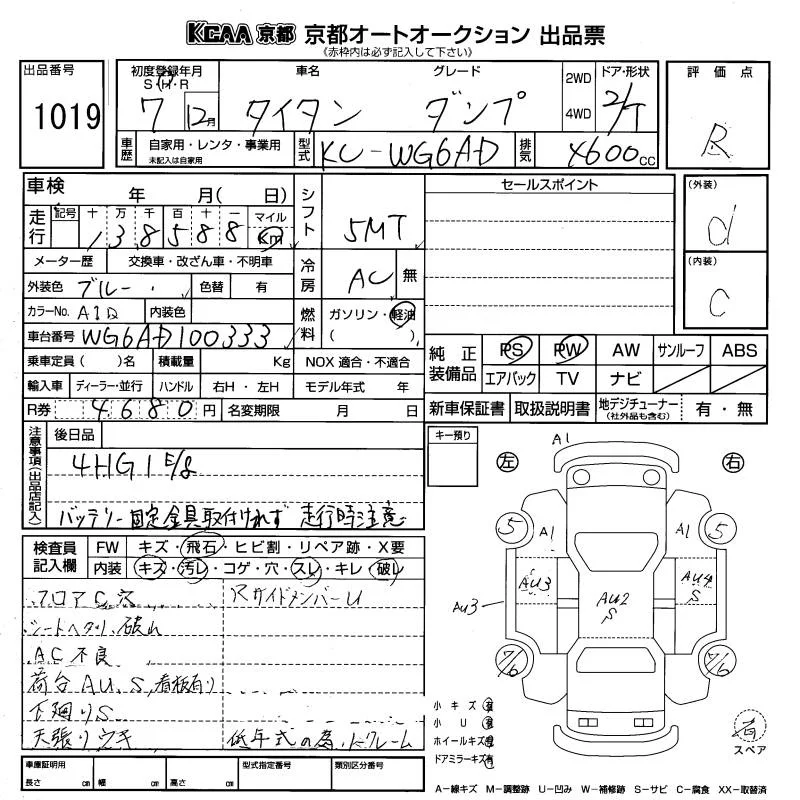 KCAA 京都 京都オートオークション 出品票
(赤枠内は必ず記入して下さい)
出品番号
1019
初度登録年月
S・H・R
7
12月
車名
タイタン
グレード
ダンプ
2WD
4WD
ドア・形状
2/T
評価点
R
車歴
自家用・レンタ・事業用
未記入は自家用
型式
KC-WG6AD
排気
4600cc
車検 年 月( 日)
走行
記号 十 万 千 百 十 一 マイル
138588 Km
メーター歴 交換車・改ざん車・不明車
外装色 ブルー 色替 有
カラーNo. A1D 内装色
車台番号 WG6AD100333
乗車定員( )名 積載量 Kg
輸入車 ディーラー・並行 ハンドル 右H・左H
R券 4680円 名変期限 月 日
シフト
5MT
冷房
AC 無
燃料
ガソリン・軽油
( )
NOX 適合・不適合
モデル年式 年
セールスポイント
(外装)
d
(内装)
C
純正装備品
PS PW AW サンルーフ ABS
エアバック TV ナビ
新車保証書 取扱説明書 地デジチューナー(社外品も含む) 有・無
注意事項(出品店記入)
後日品
4HG1 E/g
バッテリー固定金具取付けれず 走行時注意
検査員記入欄
FW キズ・飛石・ヒビ割・リペア跡・X要
内装 キズ・汚レ・コゲ・穴・スレ・キレ・破レ
フロアC穴
Rサイドメンバー U
シートヘタリ、破れ
AC不良
荷台AU、S、看板有り
下廻りS
天張りウキ
低年式の為、ノークレーム
車庫証明用
長さ cm 幅 cm 高さ cm
型式指定番号
類別区分番号
キー預り
A1
左
右
5
A1
A1
5
AU3
AU3
AU2
S
AU4
S
7/6
7/6
小キズ 有
小U 有
ホイールキズ 有
ドアミラーキズ 有
有
スペア
A-線キズ M-調整跡 U-凹み W-補修跡 S-サビ C-腐食 XX-取替済